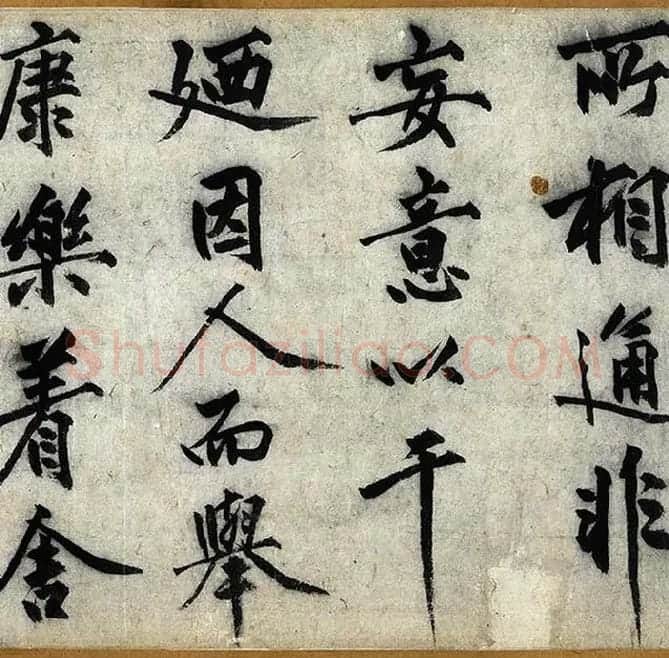 所相通非
妄意以干
廼因人而舉
康樂着舍
Shufaziliao.COM